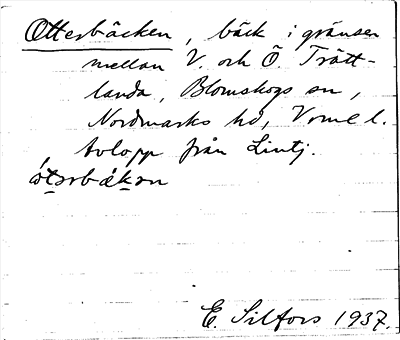 Otterbäcken, bäck i gränsen
mellan V. och Ö. Trätt-
landa, Blomskogs sn,
Nordmarks hd, Vrml l.
Avlopp från Lintj.
E. Silfors 1937.